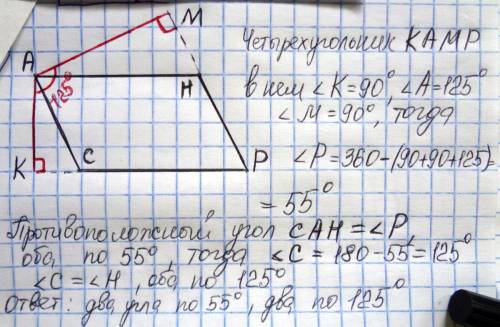 M
A
125°
H
K
C
P
Четырехугольник КАМР
в нем ∠K=90°, ∠A=125°
∠M=90°, тогда
∠P=360-(90+90+125)=
=55°
Противоположный угол CAH=∠P,
оба по 55°, тогда ∠C=180-55=125°
∠C=∠H, оба по 125°
Ответ: два угла по 55°, два по 125°